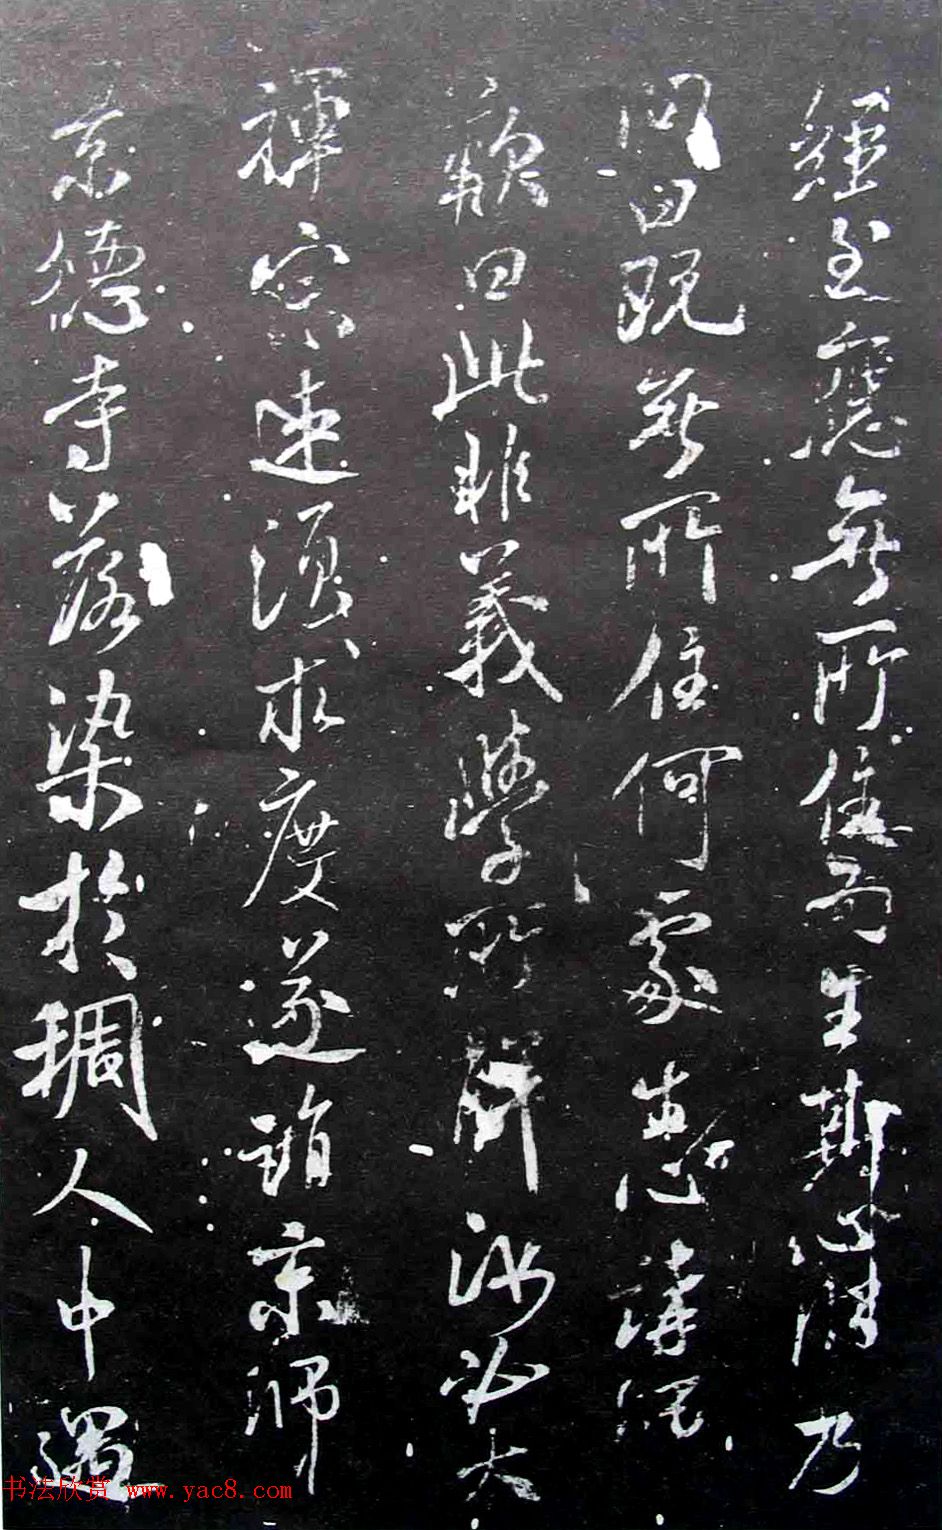 經至應無所住而生其心清乃
問曰既無所住何處生心講經
歎曰此非義學所解汝必大
禪宗速須求度遂詣京師
景德寺落染於稠人中遇
书法欣赏 www.yac8.com